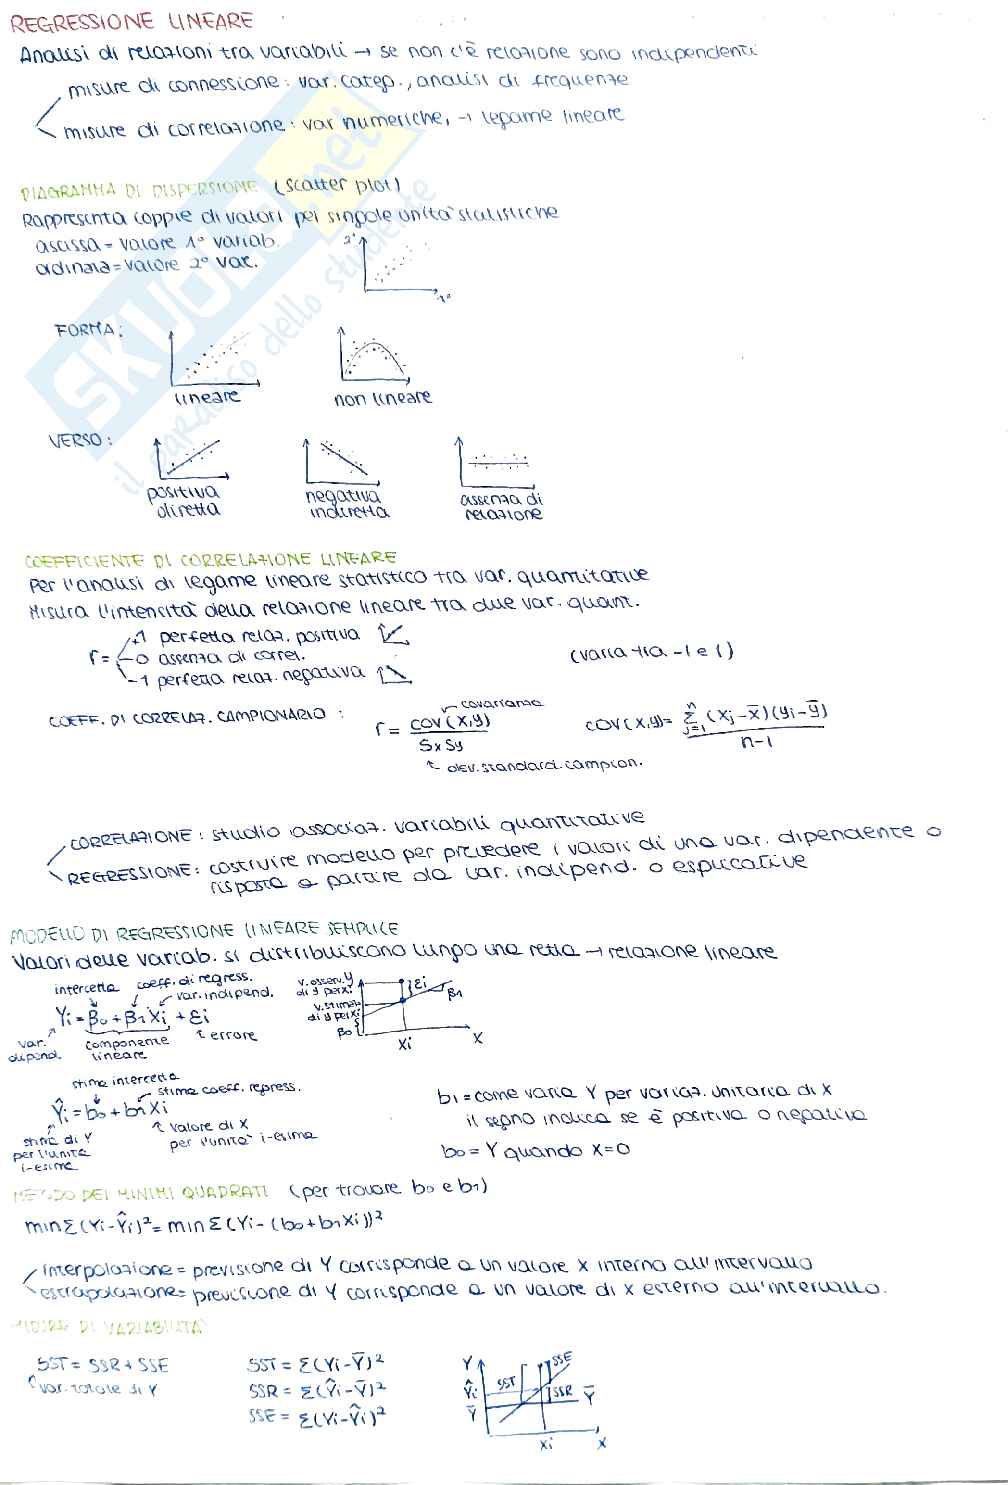 REGRESSIONE LINEARE
Analisi di relazioni tra variabili → se non c'è relazione sono indipendenti
misure di connessione: var. categ., analisi di frequenze
misure di correlazione: var numeriche, → legame lineare
DIAGRAMMA DI DISPERSIONE (scatter plot)
Rappresenta coppie di valori per singole unità statistiche
ascissa = valore 1° variab.
ordinata = valore 2° var.
2°
1°
FORMA:
lineare
non lineare
VERSO:
positiva
diretta
negativa
indiretta
assenza di
relazione
COEFFICIENTE DI CORRELAZIONE LINEARE
Per l'analisi di legame lineare statistico tra var. quantitative
Misura l'intensità della relazione lineare tra due var. quant.
r = +1 perfetta relaz. positiva
0 assenza di correl.
-1 perfetta relaz. negativa
(varia tra -1 e 1)
COEFF. DI CORRELAZ. CAMPIONARIO:
r = cov(x,y) / Sx Sy
covarianza
dev. standard campion.
cov(x,y) = Σ (xj - x̄)(yi - ȳ) / n-1
n
j=1
CORRELAZIONE: studio associaz. variabili quantitative
REGRESSIONE: costruire modello per prevedere i valori di una var. dipendente o
risposta a partire da var. indipend. o esplicative
MODELLO DI REGRESSIONE LINEARE SEMPLICE
Valori delle variab. si distribuiscono lungo una retta → relazione lineare
intercetta coeff. di regress.
var. indipend.
Yi = β0 + β1 Xi + εi
var.
dipend.
componente
lineare
errore
v. osserv. Y
di y per xi
v. stimato
di y per xi
β0
εi
β1
Xi
X
stima intercetta
stima coeff. regress.
Ŷi = b0 + b1 Xi
stima di Y
per l'unità
i-esima
valore di X
per l'unità i-esima
b1 = come varia Y per variaz. unitaria di X
il segno indica se è positiva o negativa
b0 = Y quando X=0
METODO DEI MINIMI QUADRATI (per trovare b0 e b1)
min Σ (Yi - Ŷi)² = min Σ (Yi - (b0 + b1 Xi))²
interpolazione = previsione di Y corrisponde a un valore X interno all'intervallo
estrapolazione = previsione di Y corrisponde a un valore di X esterno all'intervallo.
MISURE DI VARIABILITÀ
SST = SSR + SSE
var. totale di Y
SST = Σ (Yi - Ȳ)²
SSR = Σ (Ŷi - Ȳ)²
SSE = Σ (Yi - Ŷi)²
Y
Ŷi
Ȳ
SST
SSE
SSR
Ȳ
Xi
X
SKUOLA.net
il paradiso dello studente